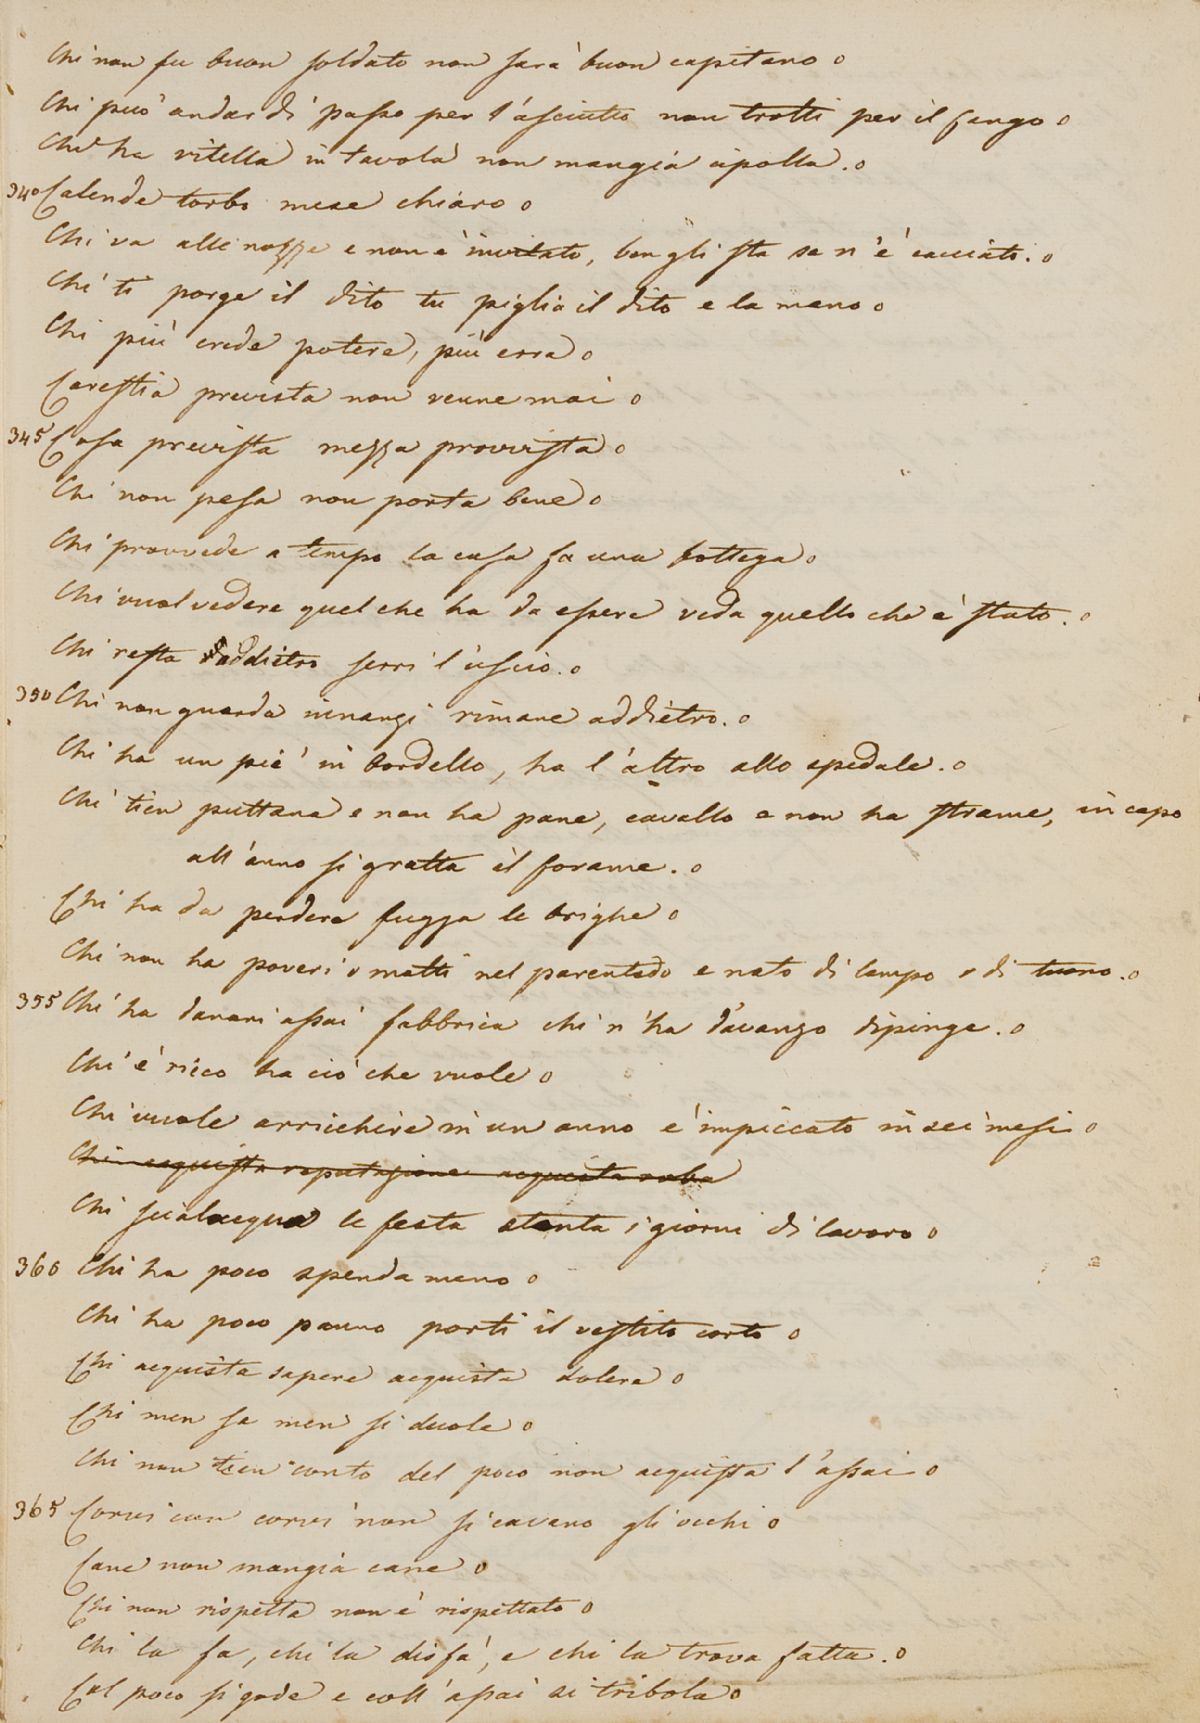 Chi non fu buon soldato non sarà buon capitano o
Chi può andar di passo per l'asciutto non trotti per il fango o
Chi ha vitella in tavola non mangia cipolla. o
340 Calende torbo mese chiaro o
Chi va alle nozze e non è invitato, ben gli sta se n'è cacciato. o
Chi ti porge il dito tu piglia il dito e la mano o
Chi più crede potere, più erra o
Carestia prevista non venne mai o
345 Cosa prevista mezza provvista o
Chi non pesa non porta bene o
Chi provvede a tempo la casa fa una bottega o
Chi vuol vedere quel che ha da essere veda quello che è stato. o
Chi resta addietro serri l'uscio. o
350 Chi non guarda innanzi rimane addietro. o
Chi ha un piè in bordello, ha l'altro allo spedale. o
Chi tien puttana e non ha pane, cavallo e non ha strame, in capo
all'anno si gratta il forame. o
Chi ha da perdere fugga le brighe o
Chi non ha poveri o matti nel parentado e nato di lampo o di tuono. o
355 Chi ha danari assai fabbrica chi n'ha d'avanzo dipinge. o
Chi è ricco ha ciò che vuole o
Chi vuole arricchire in un anno è impiccato in sei mesi o
Chi acquista reputazione acquista roba
Chi scialacqua le festa stenta i giorni di lavoro o
360 Chi ha poco spenda meno o
Chi ha poco panno porti il vestito corto o
Chi acquista sapere acquista dolere o
Chi men sa men si duole o
Chi non tien conto del poco non acquista l'assai o
365 Corvi con corvi non si cavano gli occhi o
Cane non mangia cane o
Chi non rispetta non è rispettato o
Chi la fa, chi la disfà, e chi la trova fatta. o
Col poco si gode e coll'assai si tribola o